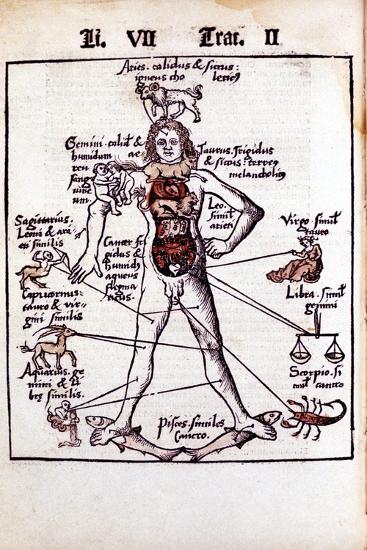 Li. VII Trac. II
Aries. calidus & siccus:
igneus cho lericus
Gemini. calid' &
humidum ae
reu
sang
uine
um
Taurus. frigidus
& siccus: terreus
melancholicus
Leo.
simil'
arieti
Sagittarius.
Leoni & arie
ti similis
Cancer fri
gidus &
humid'
aqueus
flegma
ticus.
Virgo. simil'
tauro
Capricornus:
tauro & vir
gini similis
Libra. simil'
gemini
Aquarius. ge
mini & li
bre similis.
Scorpio. si
mil' cancro
Pisces. similes
Cancro.